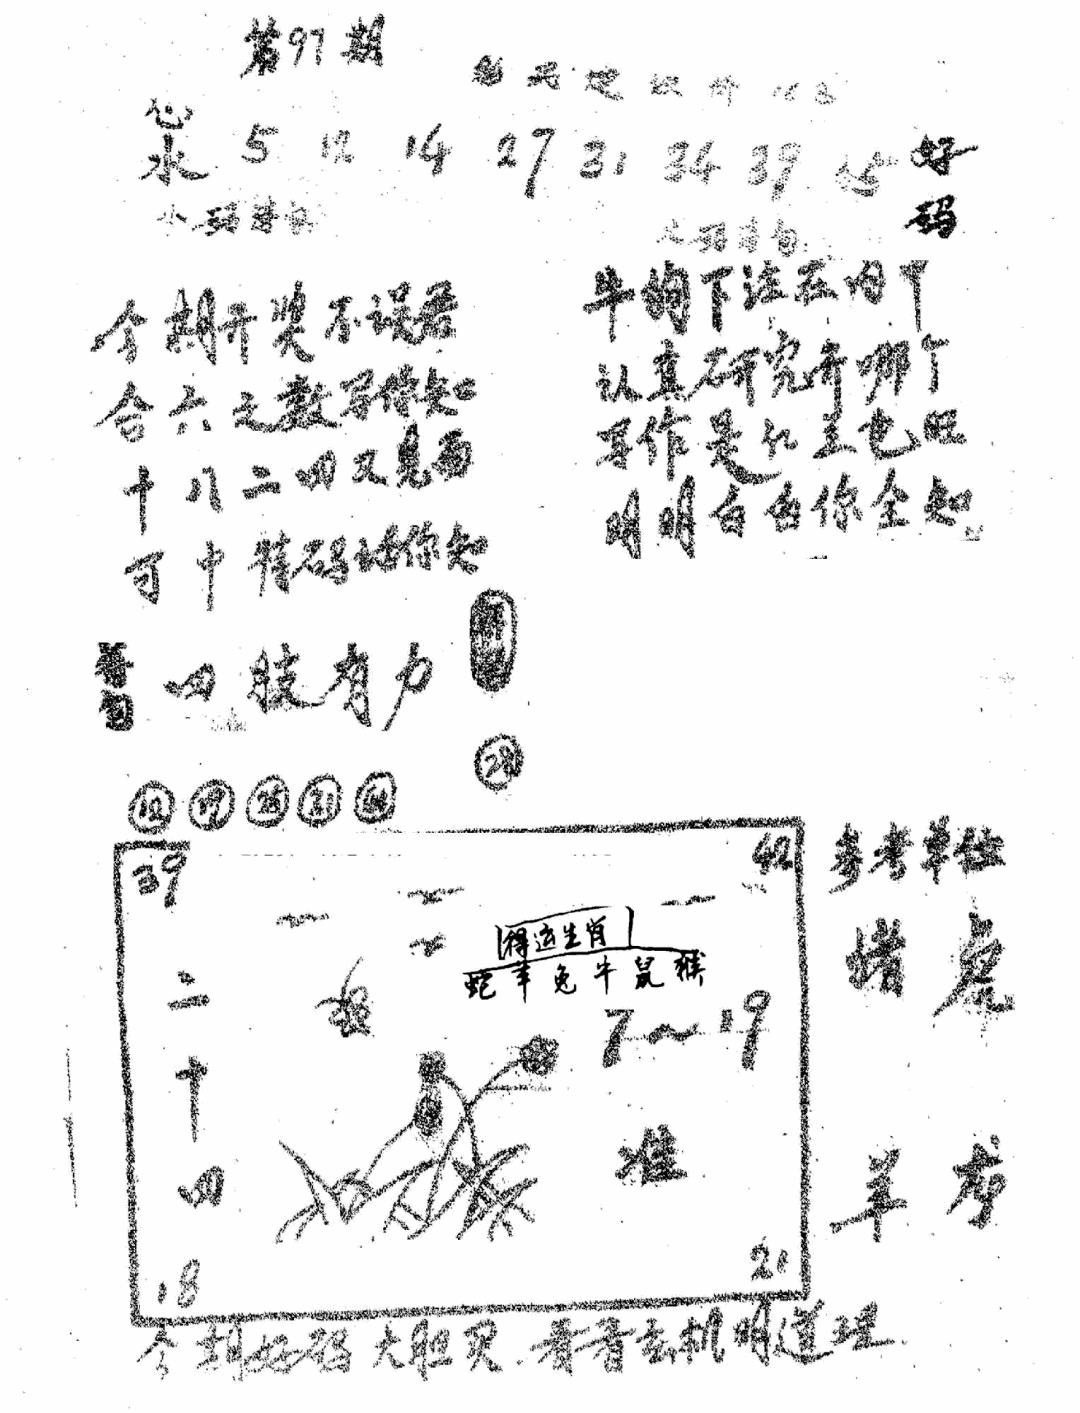 第97期
心水 5 12 14 27 31 34 39 45 好码
今期开奖不误君
合六之数写你知
十八二四又见面
可中特码话你知
牛狗下注在内中
认真研究开哪个
写作是仁主也旺
明明白白你全知
四肢有力
28
12 19 25 31 44
39 42
得运生肖
蛇羊兔牛鼠猴
二十四
7~19
准
18 21
参考单位
猪虎
羊龙
今期好码大胆买.看看玄机明道理.